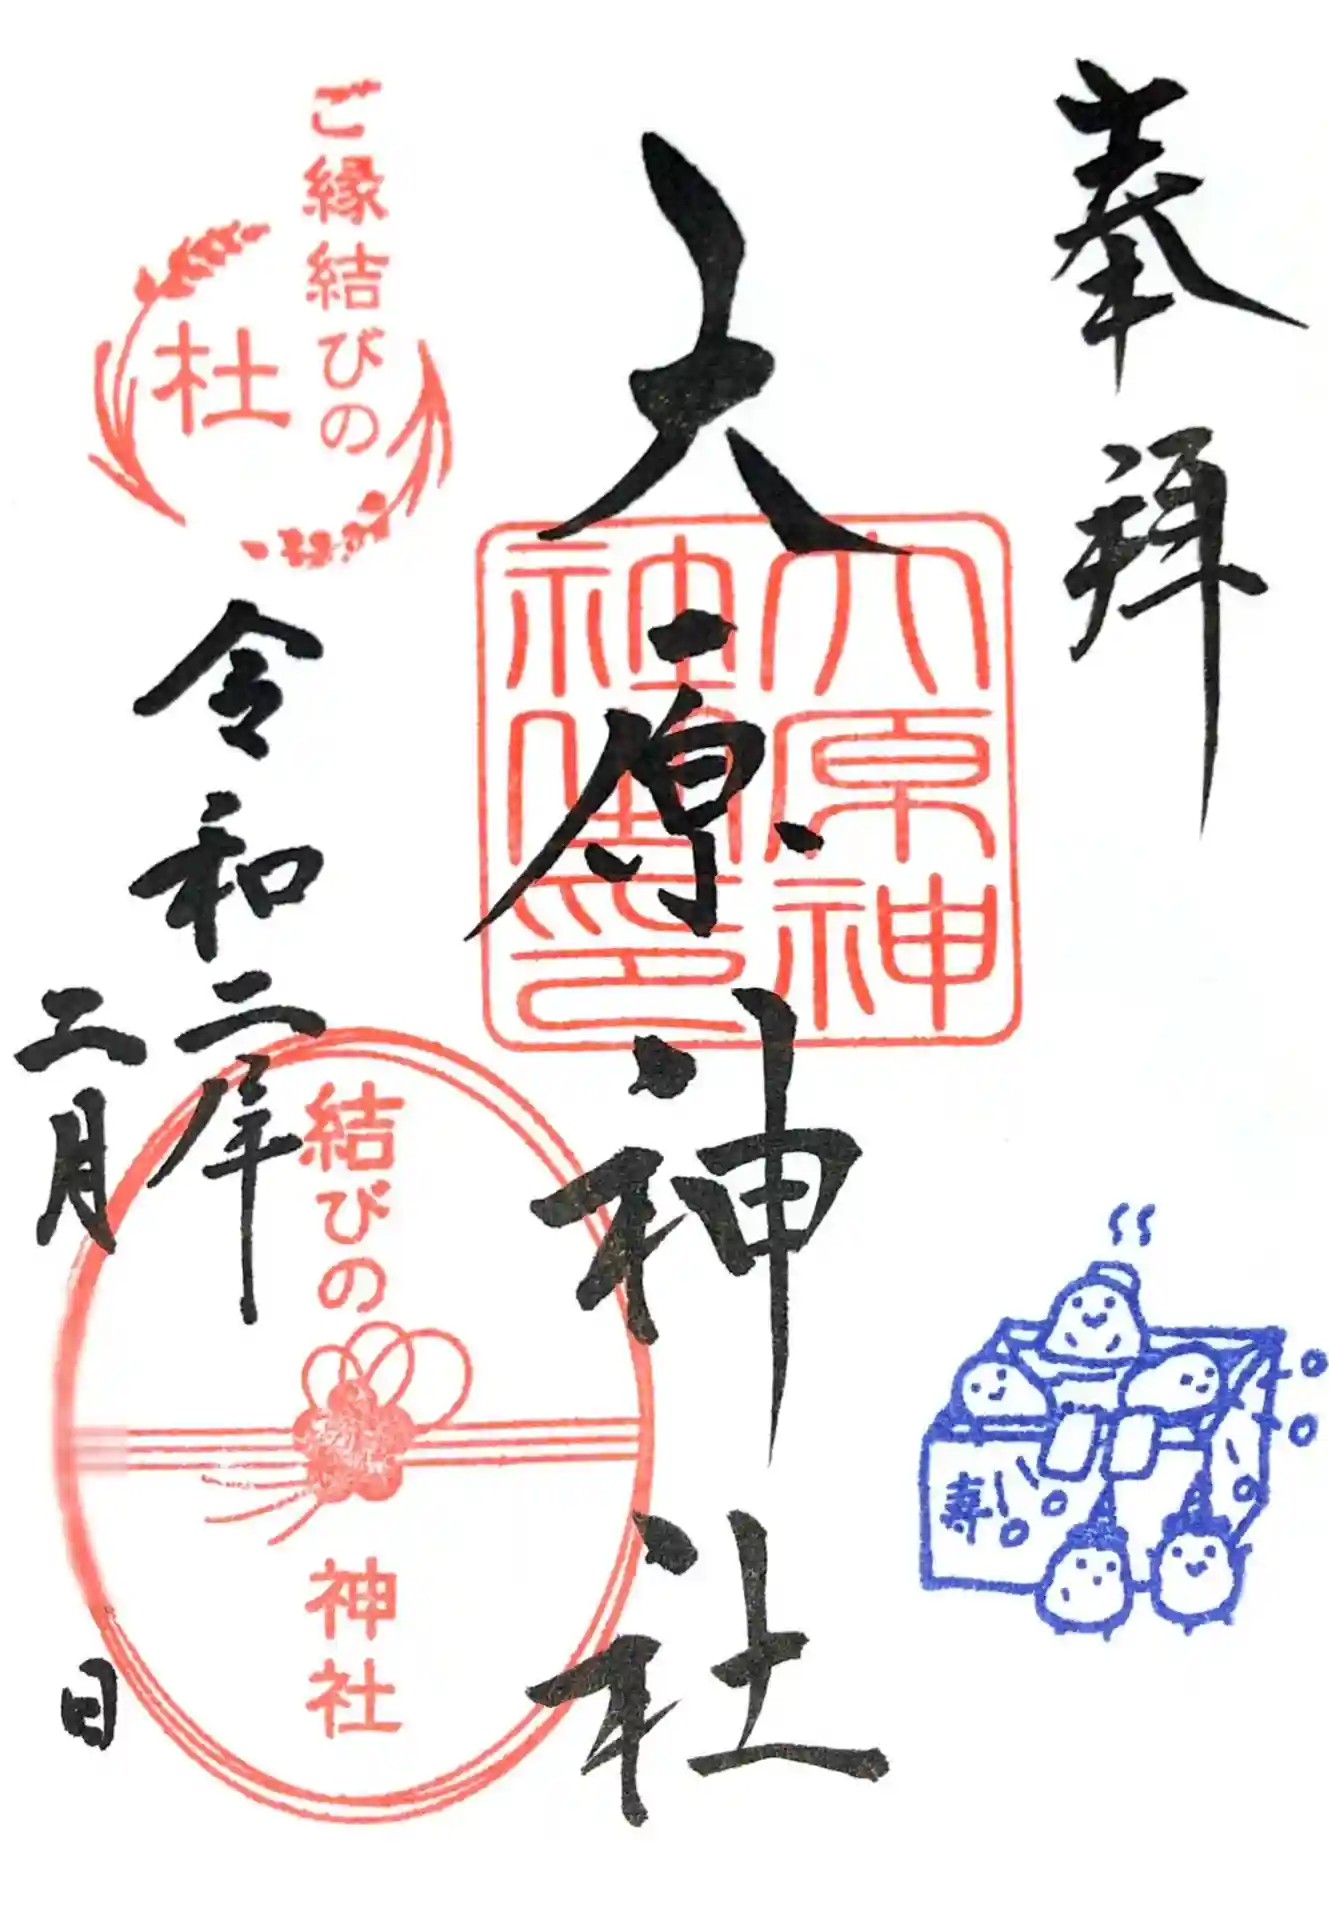 奉拝
大原神社
大原神
社御印
ご縁結びの
杜
令和二年
二月
日
結びの
神社
寿